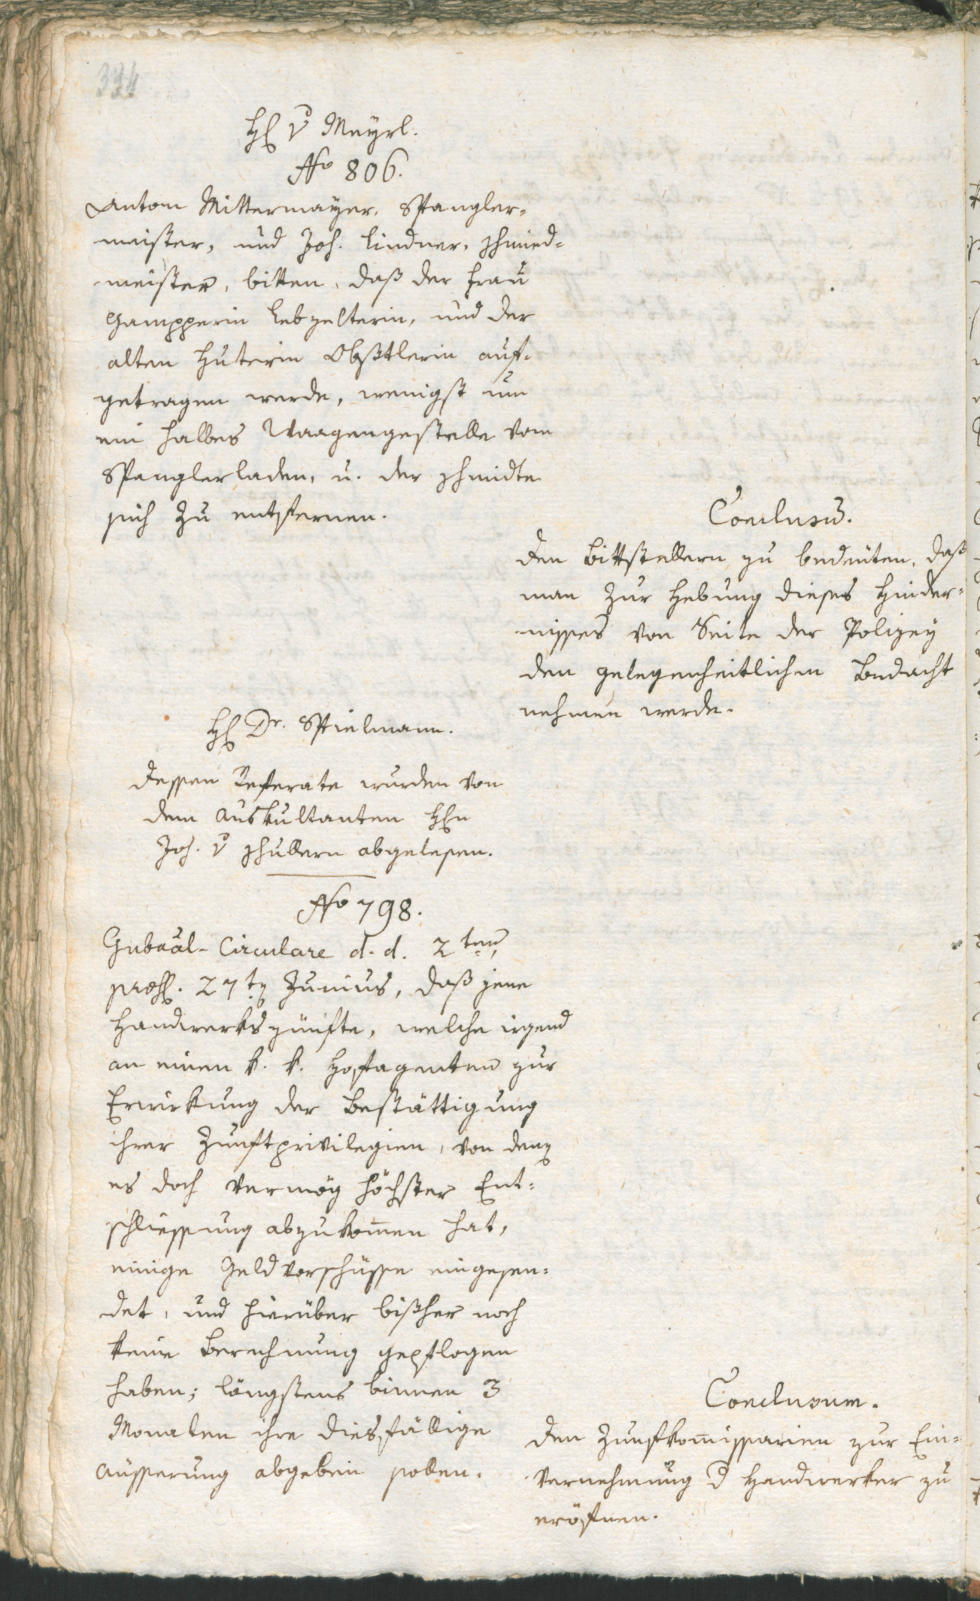 334
H. v Mayrl.
No 806.
Antom Mittermayer, Spangler-
meister, und Joh. Lindner, Schmied-
meister, bitten, daß der Frau
Gampperin Lebzelterin, und der
alten Huterin Obstlerin auf-
getragen werde, wenigst um
ein halbes Waagengestelle vom
Spanglerladen, u. der Schmidte
sich zu entfernen.
Conclusū.
Den Bittstellern zu bedeuten, daß
man zur Hebung dieses Hinder-
nisses von Seite der Polizey
den gelegenheitlichen Bedacht
nehmen werde.
H. Dr. Spielmann.
Dessen Referate wurden von
dem Auskultanten Hhn
Joh. v Schullern abgelesen.
No 798.
Gubaal-Circulare d. d. 2ten,
præs. 27ten Junius, daß jene
Handwerkszünfte, welche irgend
an einen k. k. Hofagenten zur
Erwirkung der Bestättigung
ihrer Zunftprivilegien, von denen
es doch vermög höchster Ent-
schliessung abzukom̄en hat,
einige Geldvorschüsse eingesen-
det, und hierüber bißher noch
keine Berechnung gepflogen
haben; längstens binnen 3
Monaten ihre diesfällige
Äusserung abgeben sollen.
Conclusum.
Den Zunftkom̄issarien zur Ein-
vernehmung d Handwerker zu
eröfnen.